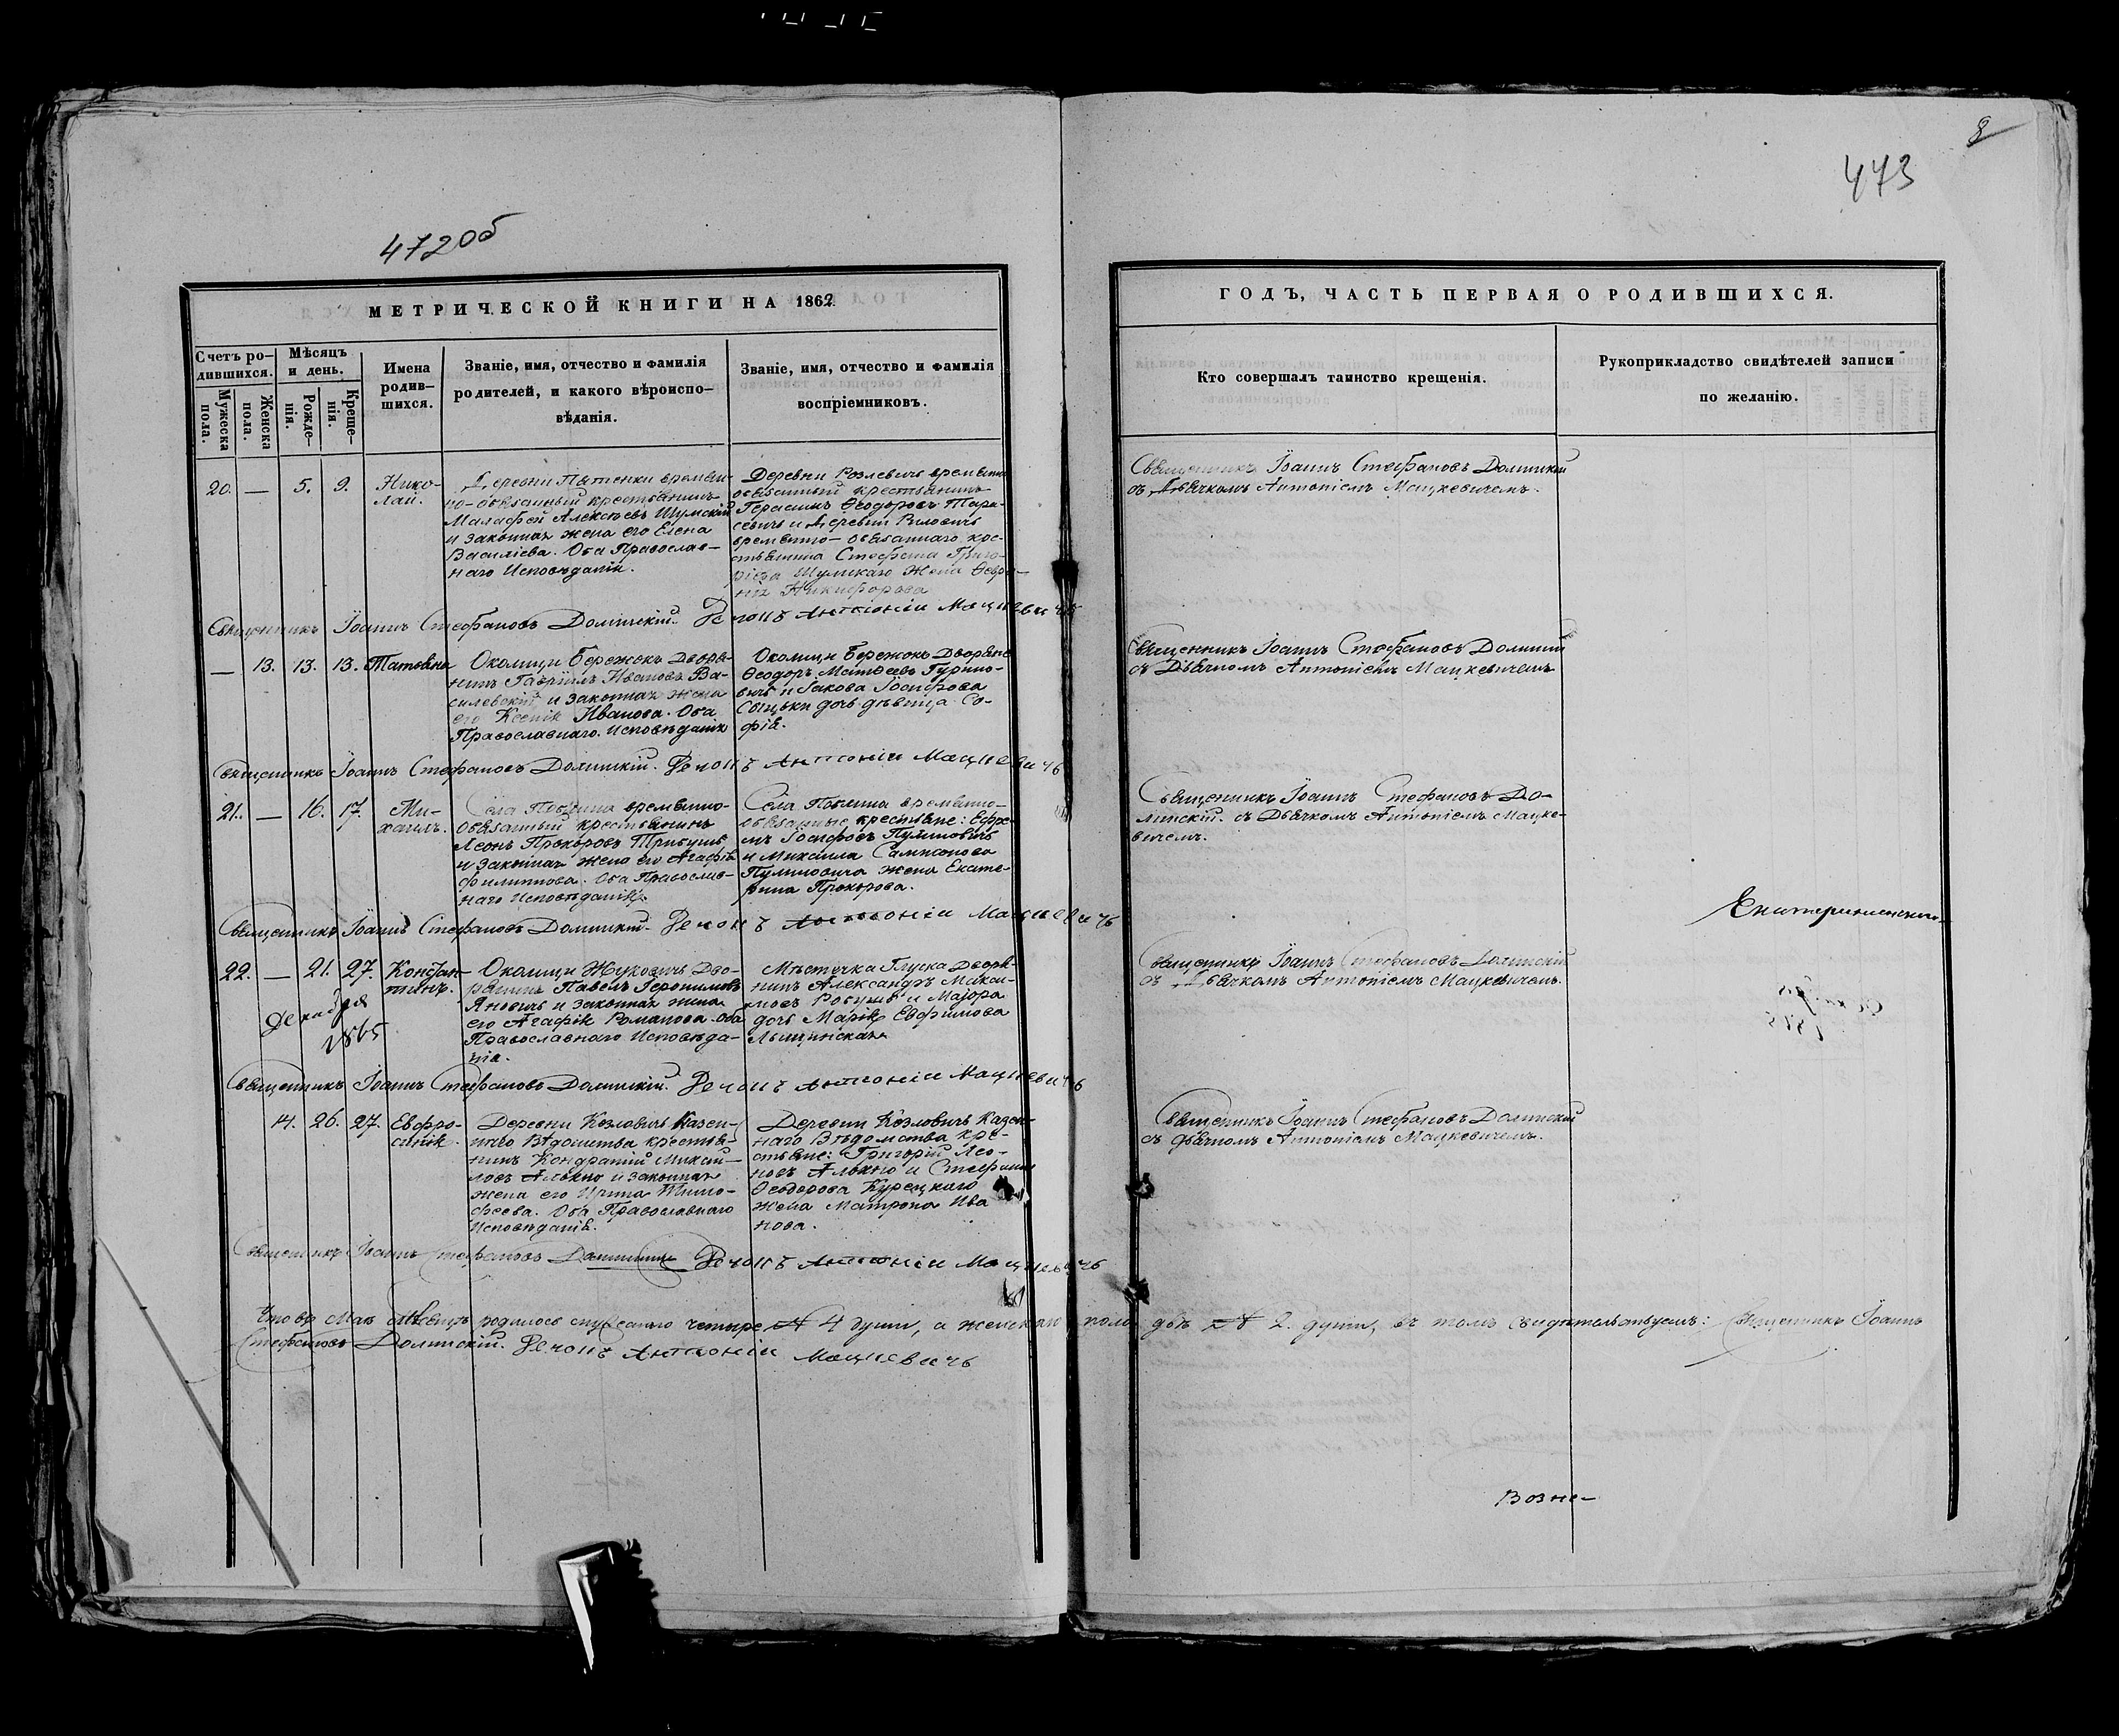 8
473
472об
МЕТРИЧЕСКОЙ КНИГИ НА 1862
ГОДЪ, ЧАСТЬ ПЕРВАЯ О РОДИВШИХСЯ.
Счетъ ро-
дившихся.
Мужеска
пола.
Женска
пола.
Мѣсяцъ
и день.
Рожде-
нія.
Креще-
нія.
Имена
родив-
шихся.
Званіе, имя, отчество и фамилія
родителей, и какого вѣроиспо-
вѣданія.
Званіе, имя, отчество и фамилія
воспріемниковъ.
Кто совершалъ таинство крещенія.
Рукоприкладство свидѣтелей записи
по желанію.
20. — 5. 9. Нико-
лай.
Деревни временн-
но-обязанный крестьянинъ
Малафей Алексѣевъ Шумскій
и законная жена его Елена
Василіева. Оба Православ-
наго Исповѣданія.
Деревни временно
обязанный крестьянинъ
Герасимъ Ѳеодоровъ Тара-
севичъ и Деревни
временно-обязаннаго кре-
стьянина Стефана Григо-
ріева Шумскаго жена Февро-
нія Никифорова
Священникъ Іоаннъ Стефановъ Долинскій
съ Дьячкомъ Антоніемъ Мацкевичемъ.
Священникъ Іоаннъ Стефановъ Долинскій. Дечокъ Антоніи Мацкевичъ
— 13. 13. 13. Татьяна
Околицы Бережокъ Дворя-
нинъ Гавріилъ Ивановъ Ва-
силевскій и законная жена
его Ксенія Иванова. Оба
Православнаго Исповѣданія
Околицы Бережокъ Дворяне
Ѳеодоръ Матѳеевъ Гурино-
вичъ и Іакова Іосифова
дочь дѣвица Со-
фія.
Священникъ Іоаннъ Стефановъ Долинскій
съ Дьячкомъ Антоніемъ Мацкевичемъ
Священникъ Іоаннъ Стефановъ Долинскій. Дечокъ Антоніи Мацкевичъ
21. — 16. 17. Ми-
хаилъ.
Села временно-
обязанный крестьянинъ
Леонъ Прохоровъ Трибушъ
и законная жена его Агафія
Филиппова. Оба Православ-
наго Исповѣданія.
Села временно-
обязанные крестьяне: Ефре-
мъ Іосифовъ Пулиновичъ
и Михаила Самсонова
Пулиновича жена Екате-
рина Прохорова.
Священникъ Іоаннъ Стефановъ До-
линскій. съ Дьячкомъ Антоніемъ Мацке-
вичемъ.
Священникъ Іоаннъ Стефановъ Долинскій. Дечокъ Антоніи Мацкевичъ
22. — 21. 27. Констан-
тинъ.
Декабря
1865
Околицы Жуковичъ Дво-
рянинъ Павелъ Іеронимовъ
Яновичъ и законная жена
его Агафія Романова. Оба
Православнаго Исповѣда-
нія.
Мѣстечка Глуска Дворя-
нинъ Александръ Макси-
мовъ и Маіора
дочь Марія Евфимова
Священникъ Іоаннъ Стефановъ Долинскій
съ Дьячкомъ Антоніемъ Мацкевичемъ.
Священникъ Іоаннъ Стефановъ Долинскій. Дечокъ Антоніи Мацкевичъ
14. 26. 27. Евфро-
синія.
Деревни Козловичъ Казен-
наго Вѣдомства крестья-
нинъ Кондратій Михай-
ловъ Алькно и законная
жена его Ирина Тимо-
феева. Оба Православнаго
Исповѣданія.
Деревни Козловичъ Казен-
наго Вѣдомства кре-
стьяне: Григорій Лео-
новъ Алькно и Стефана
Ѳеодорова Курецкаго
жена Матрона Ива
нова.
Священникъ Іоаннъ Стефановъ Долинскій
съ Дьячкомъ Антоніемъ Мацкевичемъ.
Священникъ Іоаннъ Стефановъ Долинскій Дечокъ Антоніи Мацкевичъ
Что въ Маѣ мѣсяцѣ родилось мужескаго четыре 4 души, а женскаго пола двѣ 2. души, въ томъ свидѣтельствуемъ: Священникъ Іоаннъ
Стефановъ Долинскій. Дечокъ Антоніи Мацкевичъ
Возне-